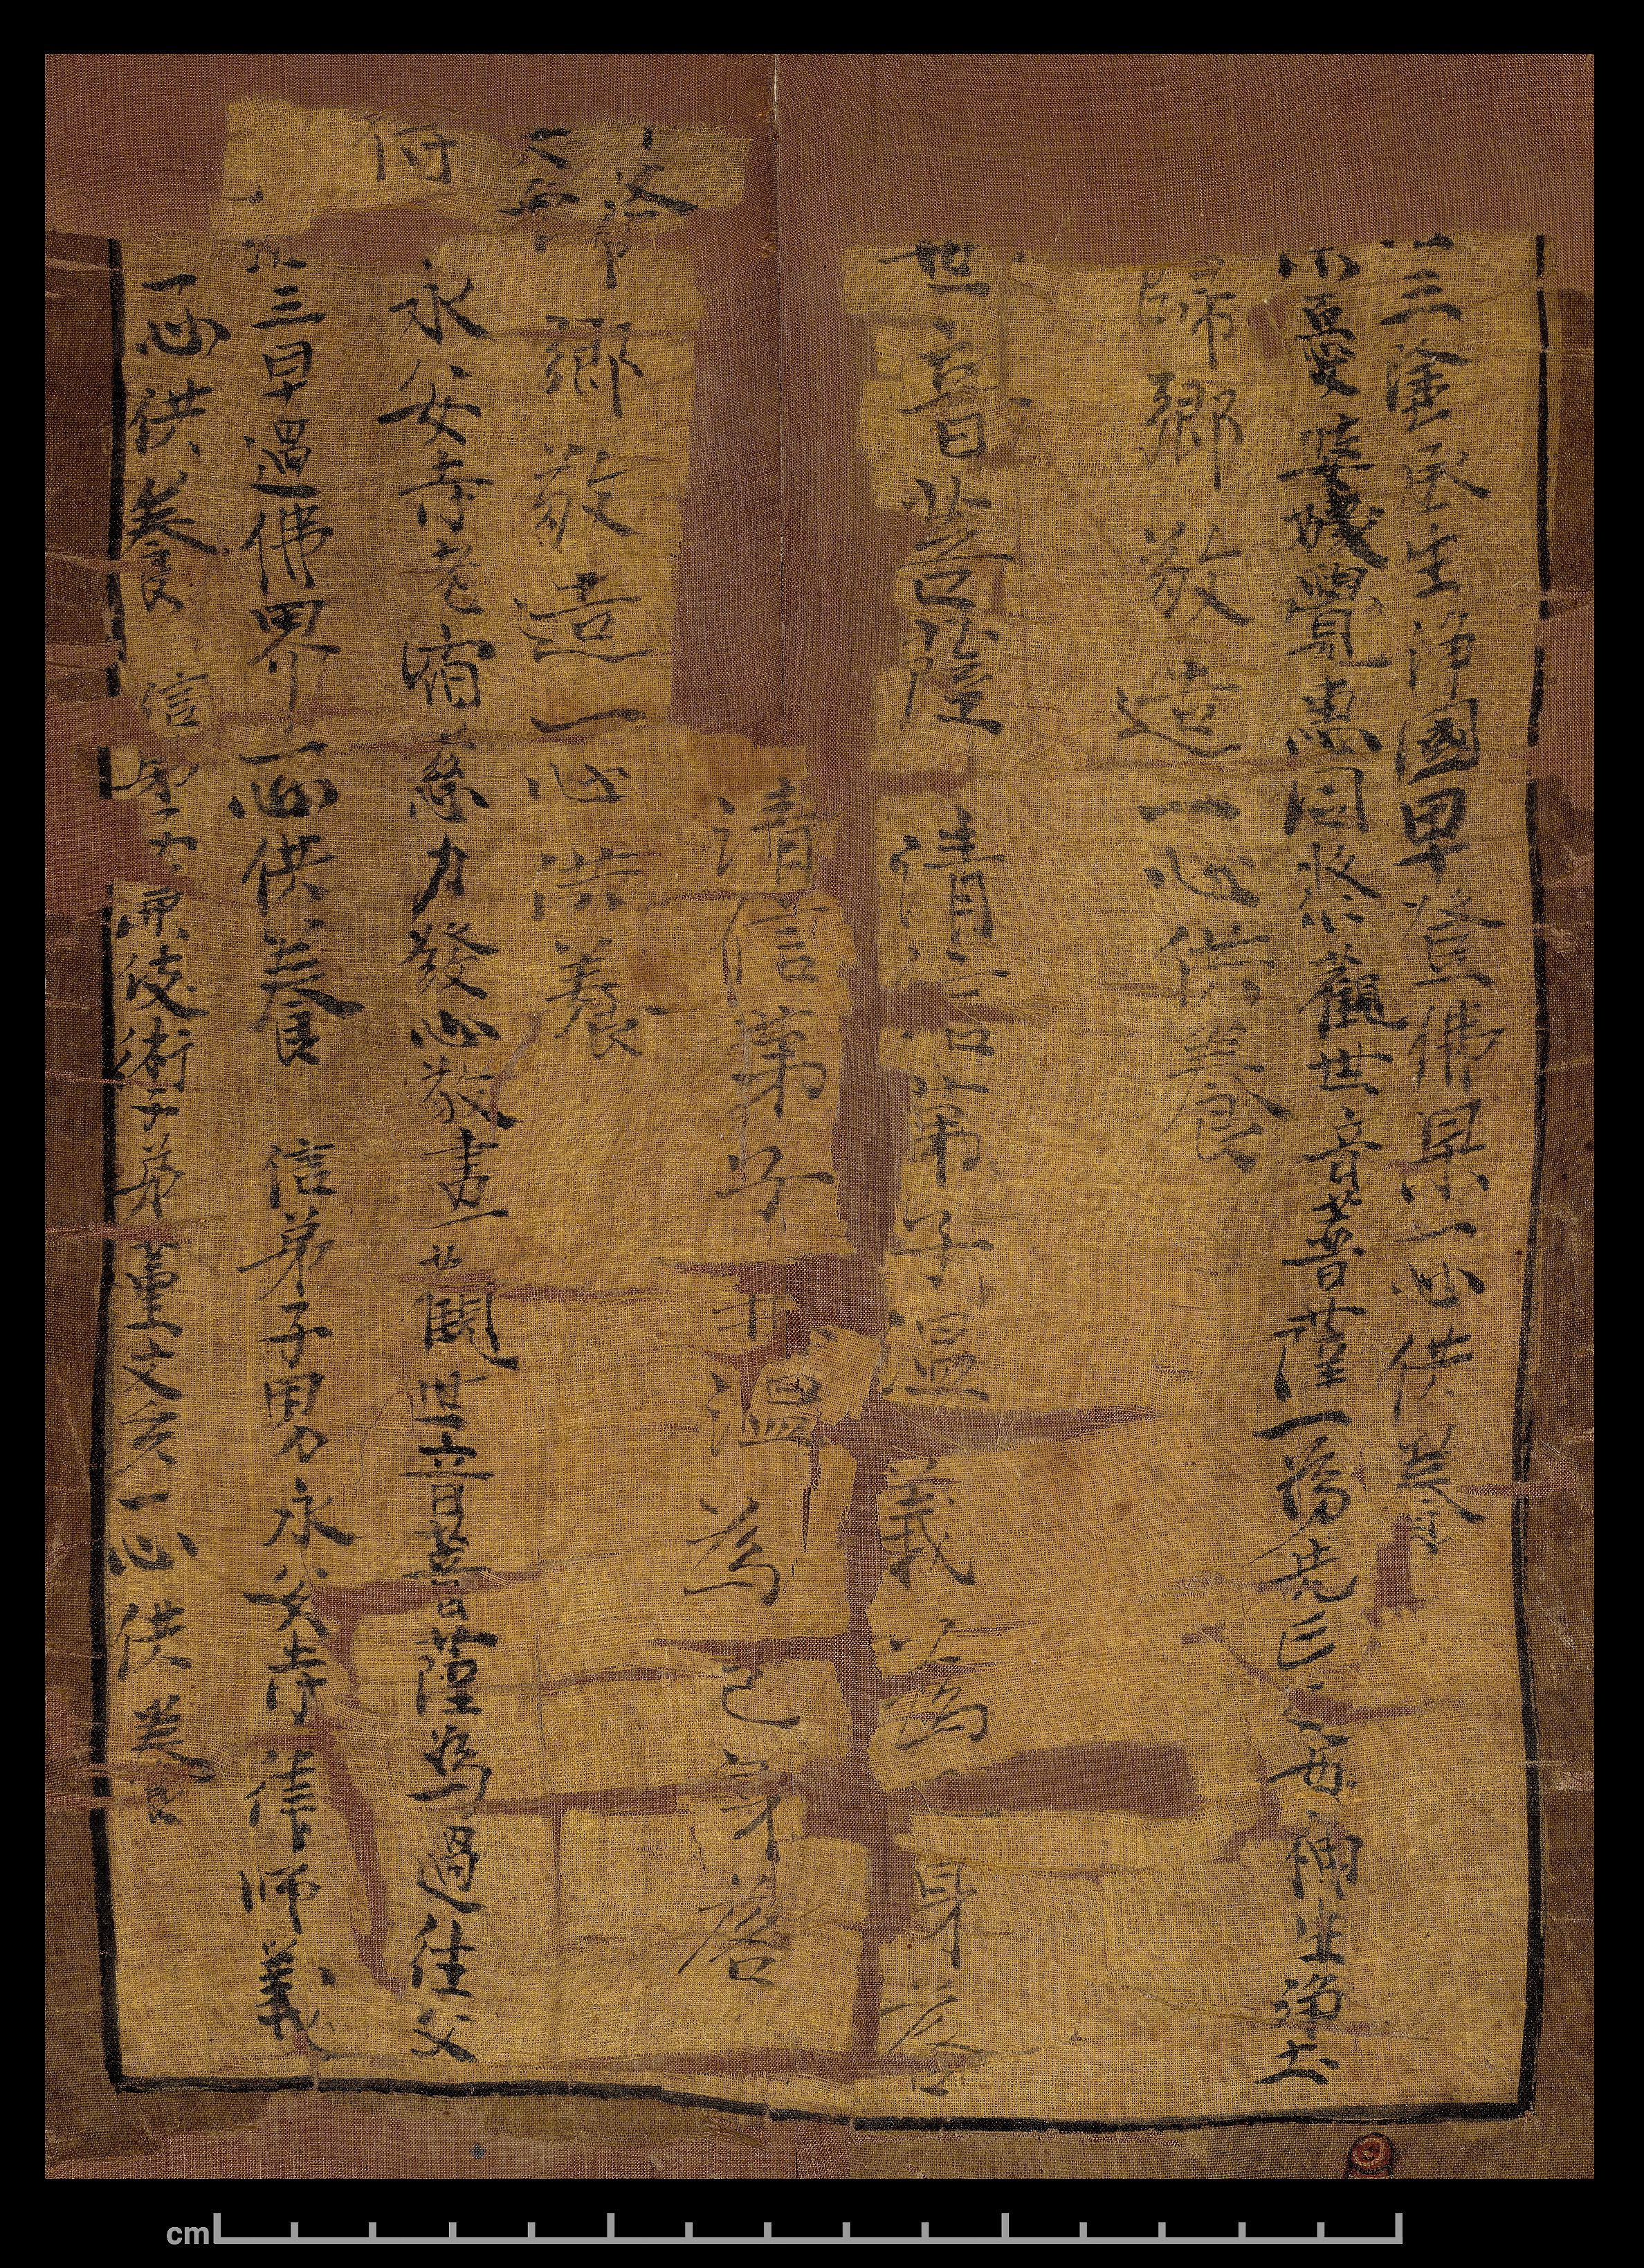 三塗承生淨國早登佛果一心供養
憂婆姨覺惠同發心觀世音菩薩一為先亡父母神生淨土
歸鄉敬造一心供養
世音菩薩 清信弟子溫義為身落
清信弟子 溫為己身落
歸鄉敬造一心供養
永安寺老宿慈力發心敬畫觀世音菩薩為過往父
三早過佛界一心供養 信弟子男永安寺律師義
一心供養 信 兼伎術子弟董文亥一心供養